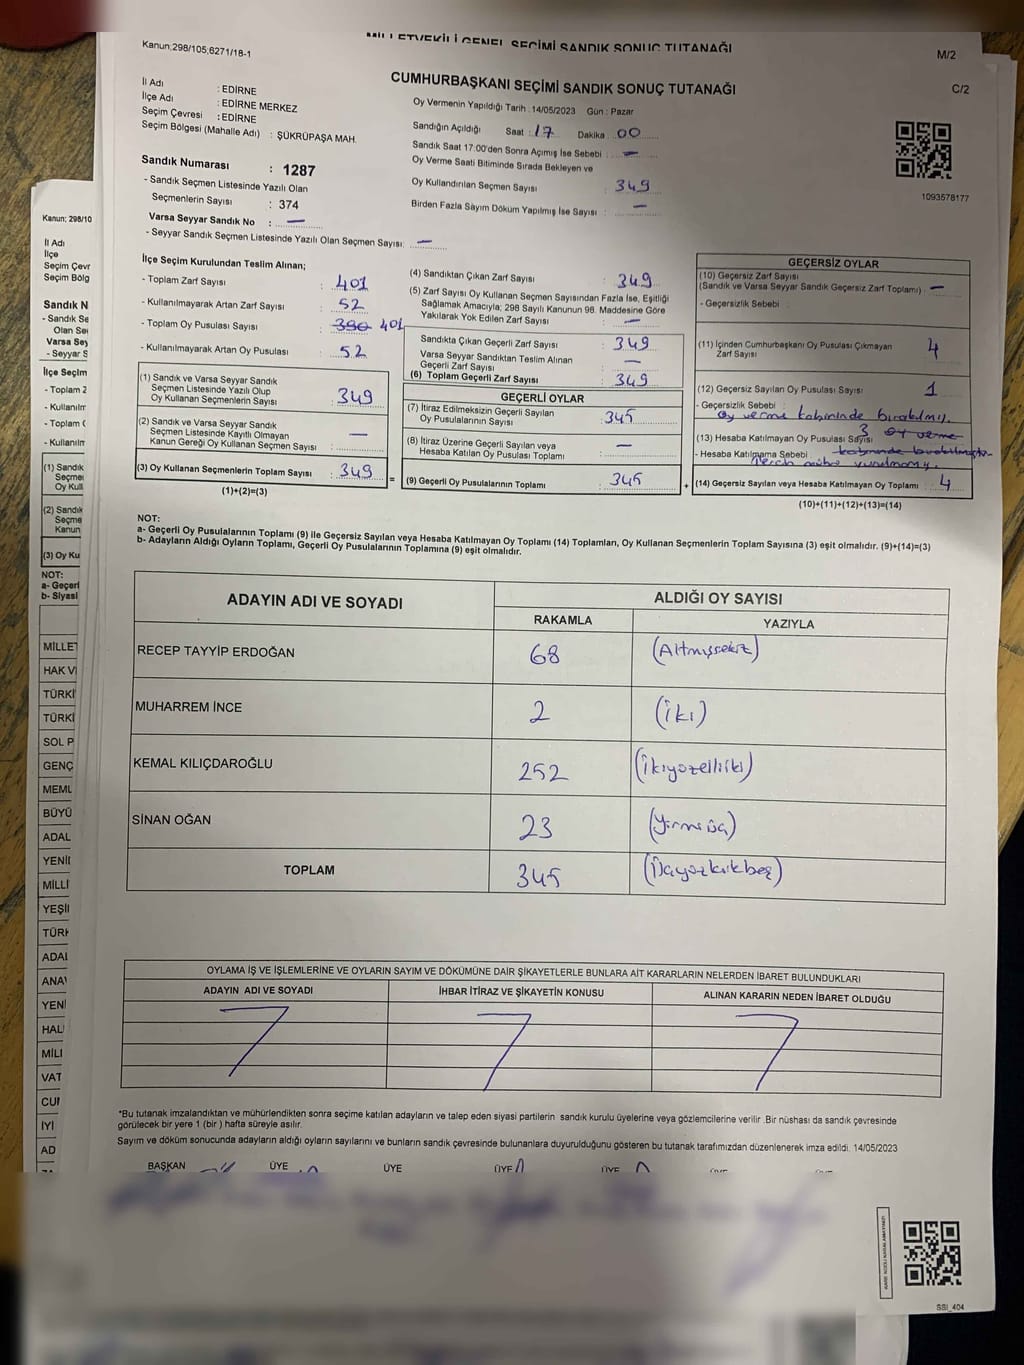 MİLLETVEKİLİ GENEL SEÇİMİ SANDIK SONUÇ TUTANAĞI
M/2
Kanun;298/105;6271/18-1
CUMHURBAŞKANI SEÇİMİ SANDIK SONUÇ TUTANAĞI
C/2
İl Adı : EDİRNE
İlçe Adı : EDİRNE MERKEZ
Seçim Çevresi : EDİRNE
Seçim Bölgesi (Mahalle Adı) : ŞÜKRÜPAŞA MAH.
Oy Vermenin Yapıldığı Tarih : 14/05/2023 Gün : Pazar
Sandığın Açıldığı Saat : 17 Dakika 00
Sandık Saat 17:00'den Sonra Açımış İse Sebebi : —
Oy Verme Saati Bitiminde Sırada Bekleyen ve
Oy Kullandırılan Seçmen Sayısı : 349
Birden Fazla Sayım Döküm Yapılmış İse Sayısı : —
1093578177
Sandık Numarası : 1287
- Sandık Seçmen Listesinde Yazılı Olan
Seçmenlerin Sayısı : 374
Varsa Seyyar Sandık No : —
- Seyyar Sandık Seçmen Listesinde Yazılı Olan Seçmen Sayısı: —
İlçe Seçim Kurulundan Teslim Alınan;
- Toplam Zarf Sayısı : 401
- Kullanılmayarak Artan Zarf Sayısı : 52
- Toplam Oy Pusulası Sayısı : 390 401
- Kullanılmayarak Artan Oy Pusulası : 52
(1) Sandık ve Varsa Seyyar Sandık
Seçmen Listesinde Yazılı Olup
Oy Kullanan Seçmenlerin Sayısı : 349
(2) Sandık ve Varsa Seyyar Sandık
Seçmen Listesinde Kayıtlı Olmayan
Kanun Gereği Oy Kullanan Seçmen Sayısı : —
(3) Oy Kullanan Seçmenlerin Toplam Sayısı : 349
(1)+(2)=(3)
(4) Sandıktan Çıkan Zarf Sayısı : 349
(5) Zarf Sayısı Oy Kullanan Seçmen Sayısından Fazla İse, Eşitliği
Sağlamak Amacıyla; 298 Sayılı Kanunun 98. Maddesine Göre
Yakılarak Yok Edilen Zarf Sayısı : —
Sandıkta Çıkan Geçerli Zarf Sayısı : 349
Varsa Seyyar Sandıktan Teslim Alınan
Geçerli Zarf Sayısı : —
(6) Toplam Geçerli Zarf Sayısı : 349
GEÇERLİ OYLAR
(7) İtiraz Edilmeksizin Geçerli Sayılan
Oy Pusulalarının Sayısı : 345
(8) İtiraz Üzerine Geçerli Sayılan veya
Hesaba Katılan Oy Pusulası Toplamı : —
(9) Geçerli Oy Pusulalarının Toplamı : 345
GEÇERSİZ OYLAR
(10) Geçersiz Zarf Sayısı
(Sandık ve Varsa Seyyar Sandık Geçersiz Zarf Toplamı) : —
- Geçersizlik Sebebi :
(11) İçinden Cumhurbaşkanı Oy Pusulası Çıkmayan
Zarf Sayısı 4
(12) Geçersiz Sayılan Oy Pusulası Sayısı 1
- Geçersizlik Sebebi :
Oy verme kabininde bırakılmış.
(13) Hesaba Katılmayan Oy Pusulası Sayısı 3 oy verme
- Hesaba Katılmama Sebebi
(14) Geçersiz Sayılan veya Hesaba Katılmayan Oy Toplamı : 4
(10)+(11)+(12)+(13)=(14)
NOT:
a- Geçerli Oy Pusulalarının Toplamı (9) ile Geçersiz Sayılan veya Hesaba Katılmayan Oy Toplamı (14) Toplamları, Oy Kullanan Seçmenlerin Toplam Sayısına (3) eşit olmalıdır. (9)+(14)=(3)
b- Adayların Aldığı Oyların Toplamı, Geçerli Oy Pusulalarının Toplamına (9) eşit olmalıdır.
ADAYIN ADI VE SOYADI
ALDIĞI OY SAYISI
RAKAMLA YAZIYLA
RECEP TAYYİP ERDOĞAN 68 (Altmışsekiz)
MUHARREM İNCE 2 (İki)
KEMAL KILIÇDAROĞLU 252 (İkiyüzelliiki)
SİNAN OĞAN 23 (Yirmiüç)
TOPLAM 345 (Üçyüzkırkbeş)
OYLAMA İŞ VE İŞLEMLERİNE VE OYLARIN SAYIM VE DÖKÜMÜNE DAİR ŞİKAYETLERLE BUNLARA AİT KARARLARIN NELERDEN İBARET BULUNDUKLARI
ADAYIN ADI VE SOYADI
İHBAR İTİRAZ VE ŞİKAYETİN KONUSU
ALINAN KARARIN NEDEN İBARET OLDUĞU
*Bu tutanak imzalandıktan ve mühürlendikten sonra seçime katılan adayların ve talep eden siyasi partilerin sandık kurulu üyelerine veya gözlemcilerine verilir .Bir nüshası da sandık çevresinde
görülecek bir yere 1 (bir ) hafta süreyle asılır.
Sayım ve döküm sonucunda adayların aldığı oyların sayılarını ve bunların sandık çevresinde bulunanlara duyurulduğunu gösteren bu tutanak tarafımızdan düzenlenerek imza edildi. 14/05/2023
BAŞKAN ÜYE ÜYE ÜYE ÜYE ÜYE ÜYE
SSI_404
Kanun; 298/10
İl Adı
İlçe
Seçim Çevr
Seçim Bölg
Sandık N
- Sandık Se
Olan Se
Varsa Sey
- Seyyar S
İlçe Seçim
- Toplam Z
- Kullanılm
- Toplam
- Kullanılm
(1) Sandık
Seçme
Oy Kull
(2) Sandık
Seçme
Kanun
(3) Oy Ku
NOT:
a- Geçerl
b- Siyasi
MİLLET
HAK V
TÜRKİ
TÜRKİ
SOL P
GENÇ
MEML
BÜYÜ
ADAL
YENİD
MİLLİ
YEŞİL
TÜRK
ADAL
ANAV
YENİ
HAL
MİLL
VAT
CUM
İYİ
AD